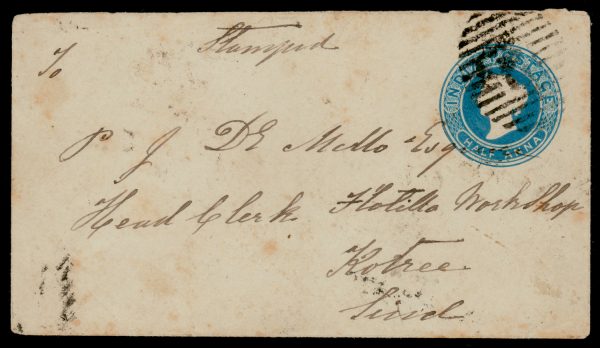 Stamped
To
INDIA POSTAGE
HALF ANNA
P J DE Mello Esq
Head Clerk Flotilla Workshop
Kotree
Sind